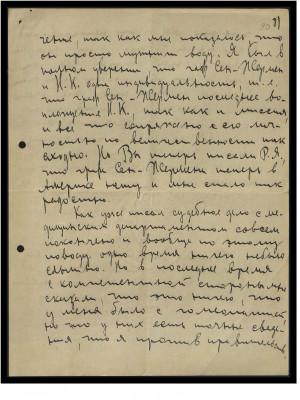 3)
чение, так как мне показалось, что
он просто мутит воду. Я был в
полном уверении что граф Сен-Жермен
и И.К. одна индивидуальность, т.е.
что граф Сен-Жермен последнее во-
площение И.К., так как и миссия
и все что сопряжено с его лич-
ностью по величественности так
сходно. Но Вы теперь писали Р.Я.,
что граф Сен-Жермен теперь в
Америке нету и мне стало так
радостно.
Как уже писал судебное дело с ме-
дицинским департаментом совсем
покончено и вообще по этому
поводу одно время ничего небыло
слышно. Но в последнее время
с компетентной стороны мне
сказали, что это ничего, что
у меня было с гомеопатией,
но что у них есть точные сведе-
ния, что я против правительства